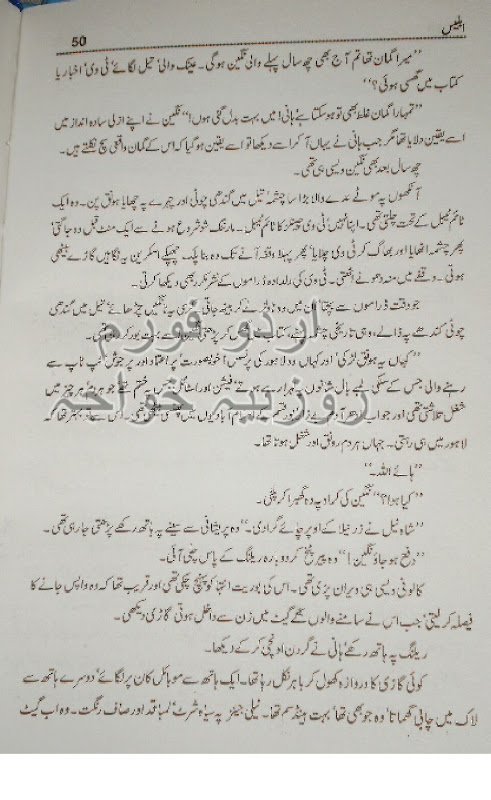 ابلیس
50
”میرا گمان تھا تم آج بھی چھ سال پہلے والی نگین ہوگی۔ عینک والی‘ تیل لگائے‘ ٹی وی‘ اخبار یا
کتاب میں گھسی ہوئی؟“
”تمہارا گمان غلط بھی تو ہو سکتا ہے ہانی! میں بہت بدل گئی ہوں!“ نگین نے اپنے ازلی سادہ انداز میں
اسے یقین دلایا تھا مگر جب ہانی نے یہاں آ کر اسے دیکھا تو اسے یقین ہو گیا کہ اس کے گمان واقعی سچ نکلتے ہیں۔
چھ سال بعد بھی نگین ویسی ہی تھی۔
آنکھوں پہ موٹے عدسے والا بڑا سا چشمہ‘ تیل میں گندھی چوٹی اور چہرے پہ چھایا ہونق پن۔ وہ ایک
ٹائم ٹیبل کے تحت چلتی تھی۔ اپنا نہیں‘ ٹی وی چینلز کا ٹائم ٹیبل۔ مارننگ شو شروع ہونے سے ایک منٹ قبل وہ جاگتی‘
پھر چشمہ اٹھایا اور بھاگ کر ٹی وی چلایا‘ پھر پہلا وقفہ آنے تک وہ بنا پلک جھپکے اسکرین پہ نگاہیں گاڑے بیٹھی
ہوتی۔ وقفے میں منہ دھونے اٹھتی۔ ٹی وی کی دلدادہ ڈراموں کے نشر مکرر بھی دیکھا کرتی۔
جو وقت ڈراموں سے بچتا
چوٹی کندھے پہ ڈالے، وہی تاریخی چشمہ
اردو فورم
”کہاں یہ ہونق لڑکی‘ اور کہاں وہ لاہور کی پرنسس! خوبصورت‘ پر اعتماد اور پر جوش‘ ٹپ ٹاپ سے
رہنے والی جس کے سلکی لمبے بال شانوں پہ
روزینہ خواجہ
شغل تلاشتی تھی اور جواب
لاہور میں ہی رہتی۔ جہاں ہر دم رونق اور شغل ہوتا تھا۔
”ہائے اللہ۔“
”کیا ہوا؟“ نگین کی کراہ پہ وہ گھبرا کر پلٹی۔
”شاہ نیل نے زر نیلا کے اوپر چائے گرا دی۔“ وہ پریشانی سے سینے پہ ہاتھ رکھے پڑھتی جا رہی تھی۔
”دفع ہو جاؤ نگین!“ وہ پیر پٹخ کر دوبارہ ریلنگ کے پاس چلی آئی۔
کالونی ویسی ہی ویران پڑی تھی۔ اس کی بوریت انتہا کو پہنچ چکی تھی اور قریب تھا کہ وہ واپس جانے کا
فیصلہ کر لیتی‘ جب اس نے سامنے والوں کے کھلے گیٹ میں زن سے داخل ہوتی گاڑی دیکھی۔
ریلنگ پہ ہاتھ رکھے‘ ہانی نے گردن اونچی کر کے دیکھا۔
کوئی گاڑی کا دروازہ کھول کر باہر نکل رہا تھا۔ ایک ہاتھ سے موبائل کان پر لگائے‘ دوسرے ہاتھ سے
لاک میں چابی گھماتا‘ وہ جو بھی تھا‘ بہت ہینڈسم تھا۔ نیلی جینز پہ سیاہ شرٹ‘ لمبا قد اور صاف رنگت۔ وہ اب گیٹ